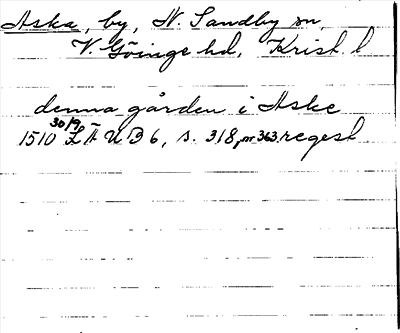 Aska, by, N. Sandby sn,
V. Göinge hd, Krist. l
denna gården i Aske
1510 30/9 LÄUB 6, s. 318, nr 363. regest